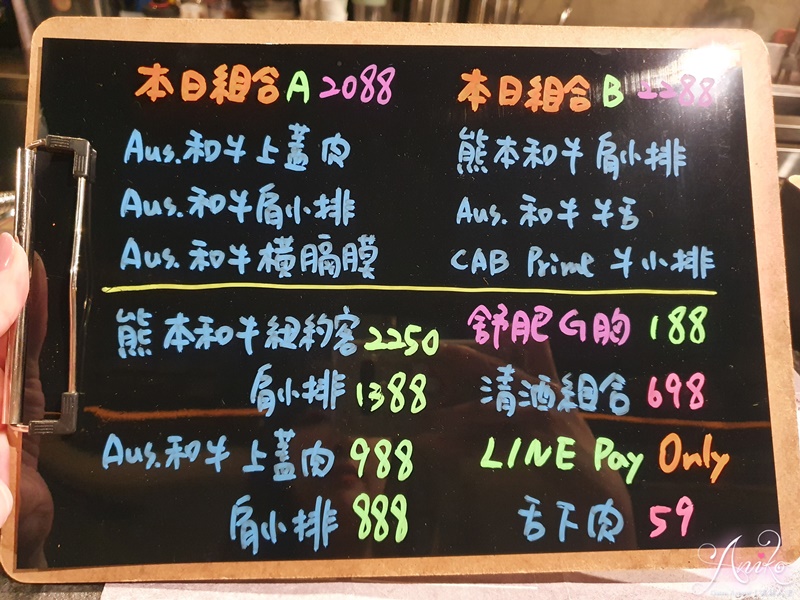 本日組合A 2088
Aus.和牛上蓋肉
Aus.和牛肩小排
Aus.和牛橫膈膜
本日組合B 2288
熊本和牛肩小排
Aus.和牛牛舌
CAB Prime 牛小排
熊本和牛紐約客 2250
肩小排 1388
Aus.和牛上蓋肉 988
肩小排 888
舒肥G胸 188
清酒組合 698
LINE Pay Only
舌下肉 59
Aniko